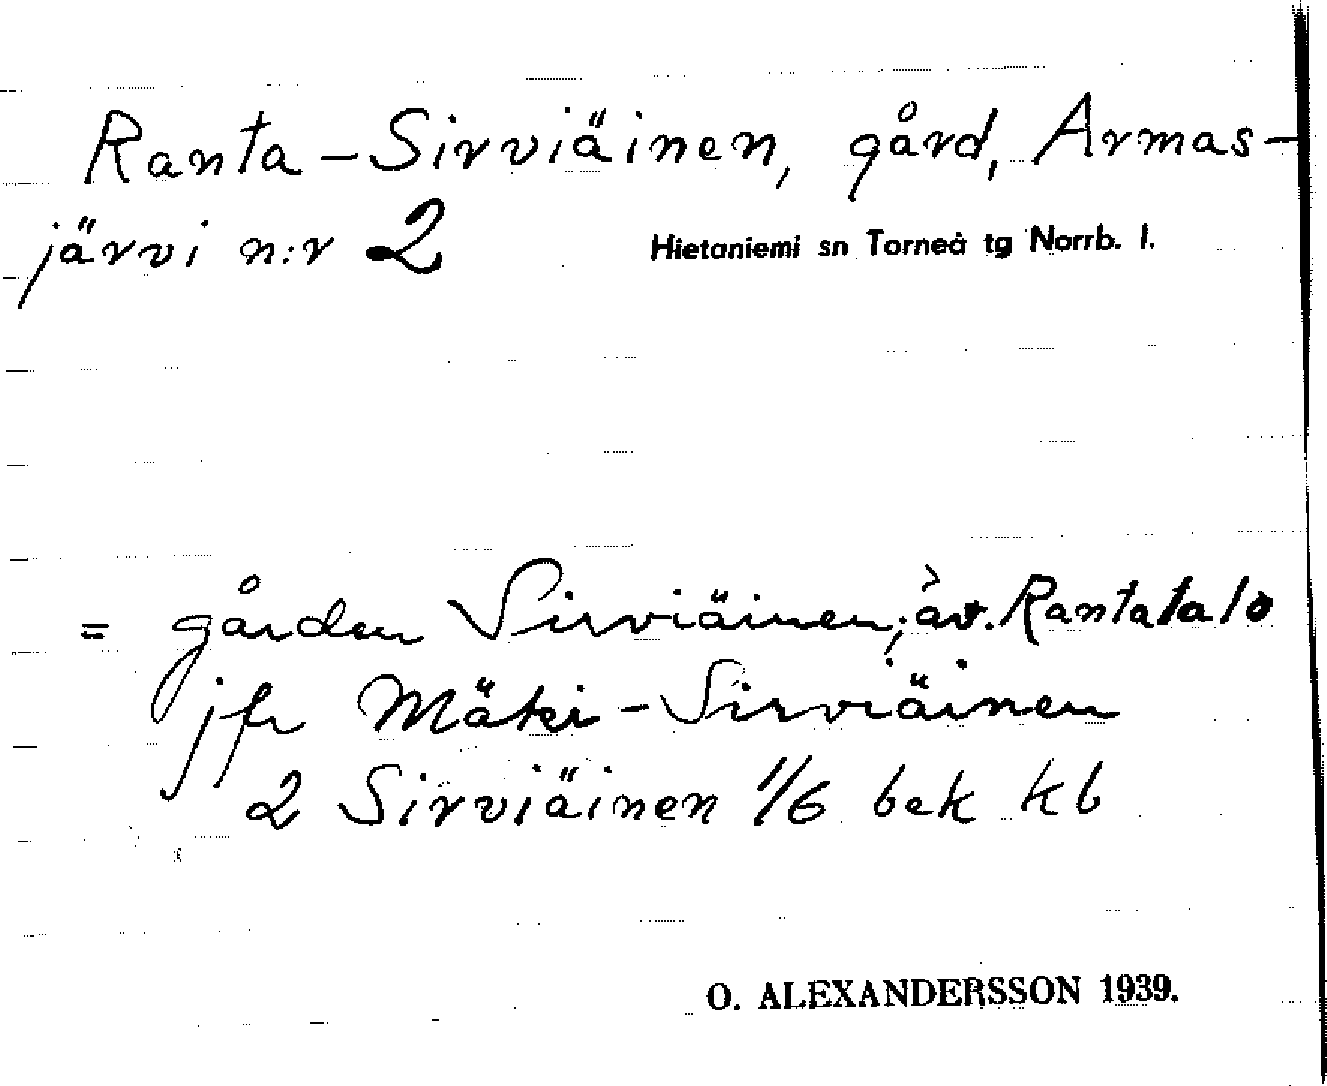 Ranta-Sirviäinen, gård, Armas-
järvi n:r 2
Hietaniemi sn Torneå tg Norrb. l.
= gården Sirviäinen; äv. Rantatalo
jfr Mäki-Sirviäinen
2 Sirviäinen 1/6 bek kb
O. ALEXANDERSSON 1939.